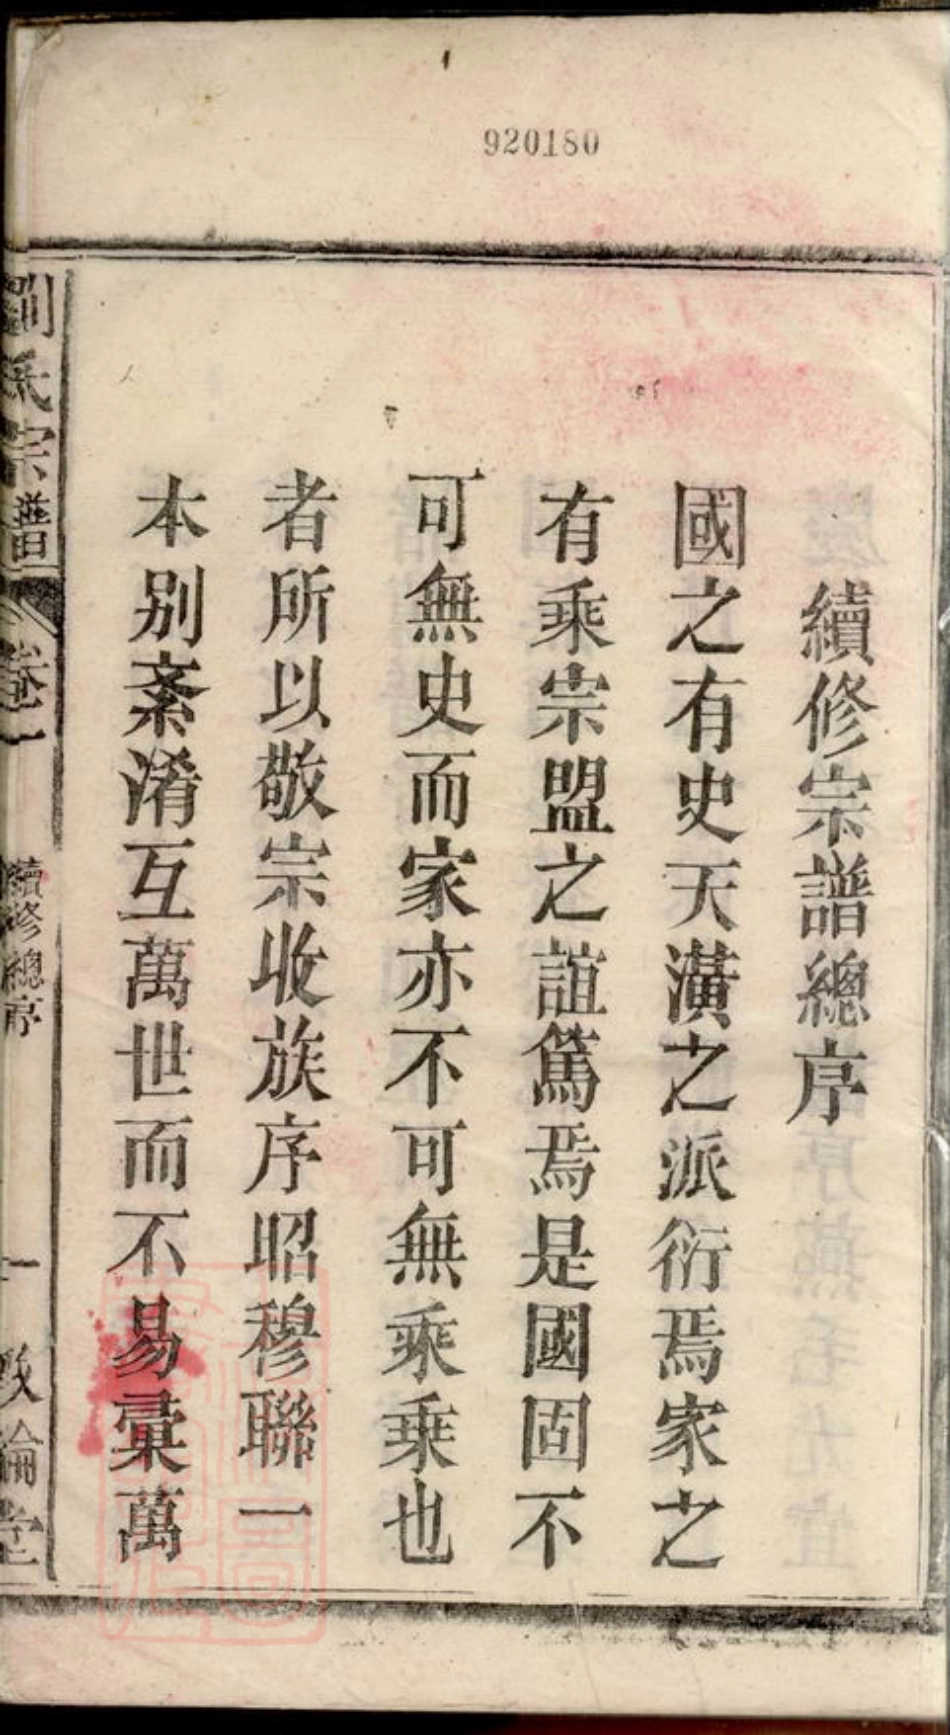 920180
續修宗譜總序
國之有史天潢之派衍焉家之
有乘宗盟之誼篤焉是國固不
可無史而家亦不可無乘乘也
者所以敬宗收族序昭穆聯一
本别紊淆互萬世而不易彙萬
劉氏宗譜
卷一
續修總序
一
敦倫堂